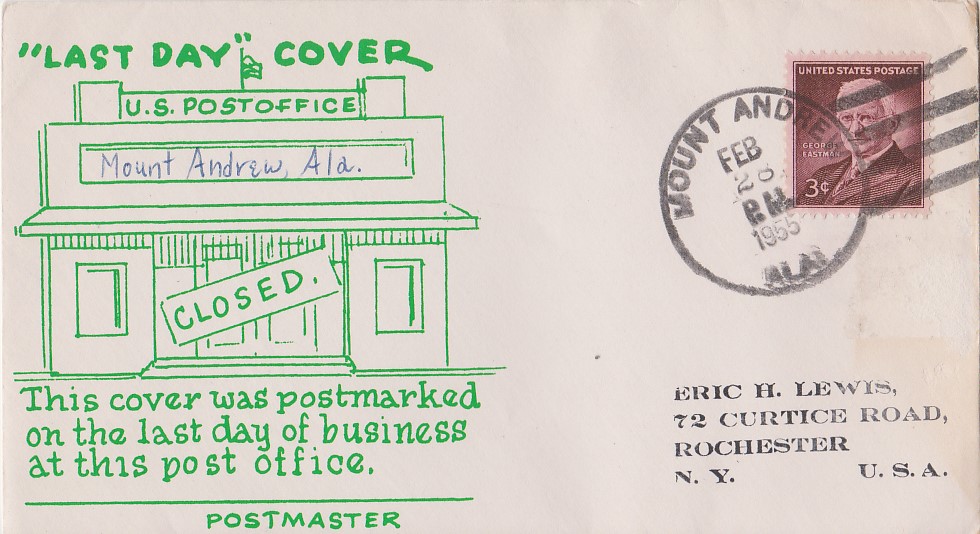 "LAST DAY" COVER
U.S. POSTOFFICE
Mount Andrew, Ala.
CLOSED.
This cover was postmarked
on the last day of business
at this post office.
POSTMASTER
MOUNT ANDREW
FEB
P.M.
1955
ALA.
UNITED STATES POSTAGE
GEORGE
EASTMAN
3¢
ERIC H. LEWIS,
72 CURTICE ROAD,
ROCHESTER
N. Y. U. S. A.